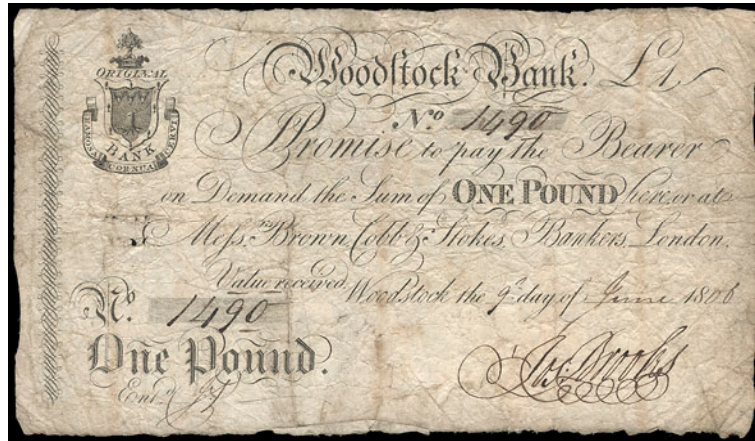 ORIGINAL
BANK
RAMOSA CORNUA CERVI
Woodſtock Bank. £1
No. 1490
I Promise to pay the Bearer
on Demand the Sum of ONE POUND here, or at
Meſs.rs Brown, Cobb & Stokes, Bankers, London.
Value received, Woodstock the 9 day of June 1806
No. 1490
One Pound.
Ent.d
Jos: Brooks